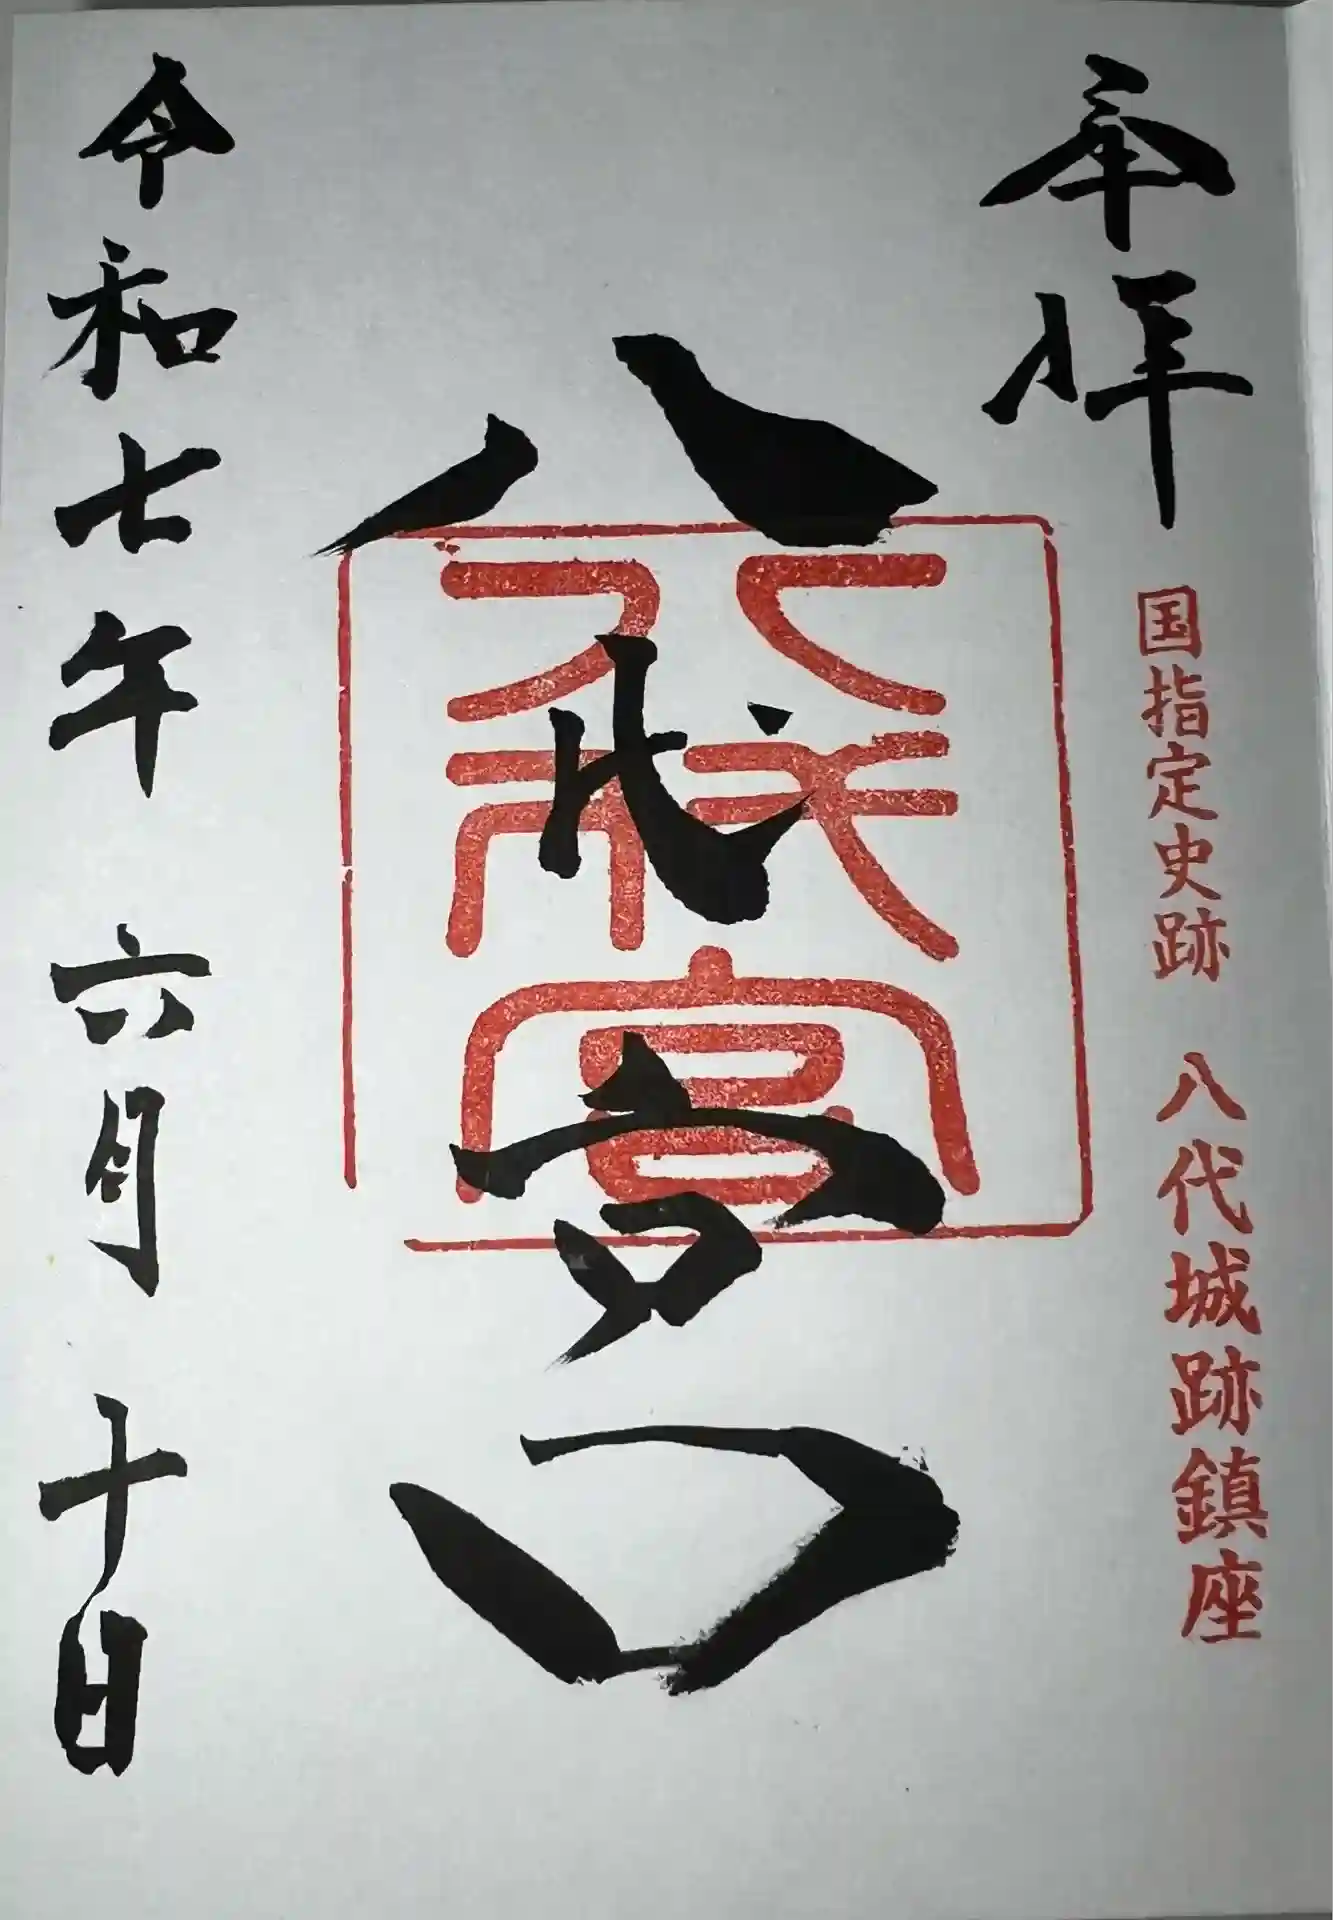 奉拝
国指定史跡 八代城跡鎮座
八代宮
令和七年 六月 十日